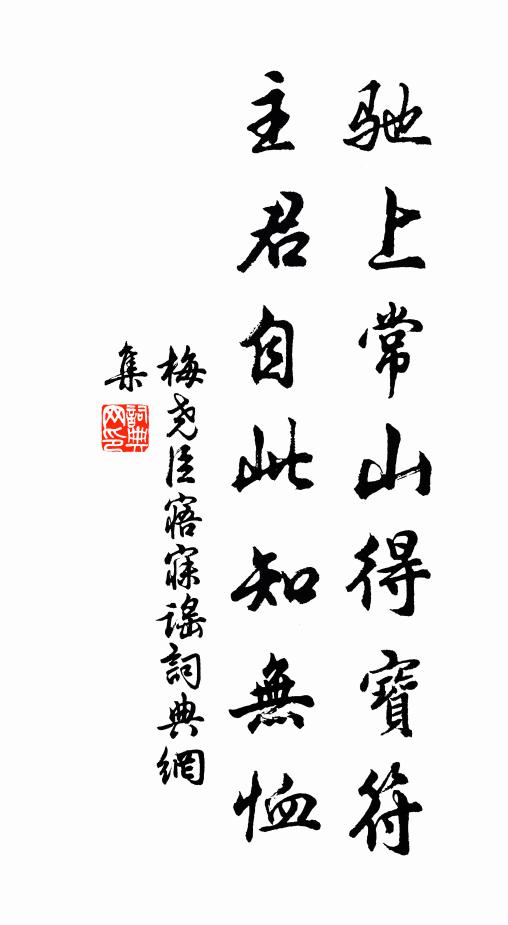 馳上常山得寶符
主君自此知無恤
梅尧臣寤寐謠詞典網
集
詞典
网印